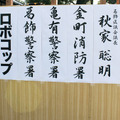 葛飾区議会議長
秋家聡明
金町消防署
亀有警察署
葛飾警察署
ロボコップ